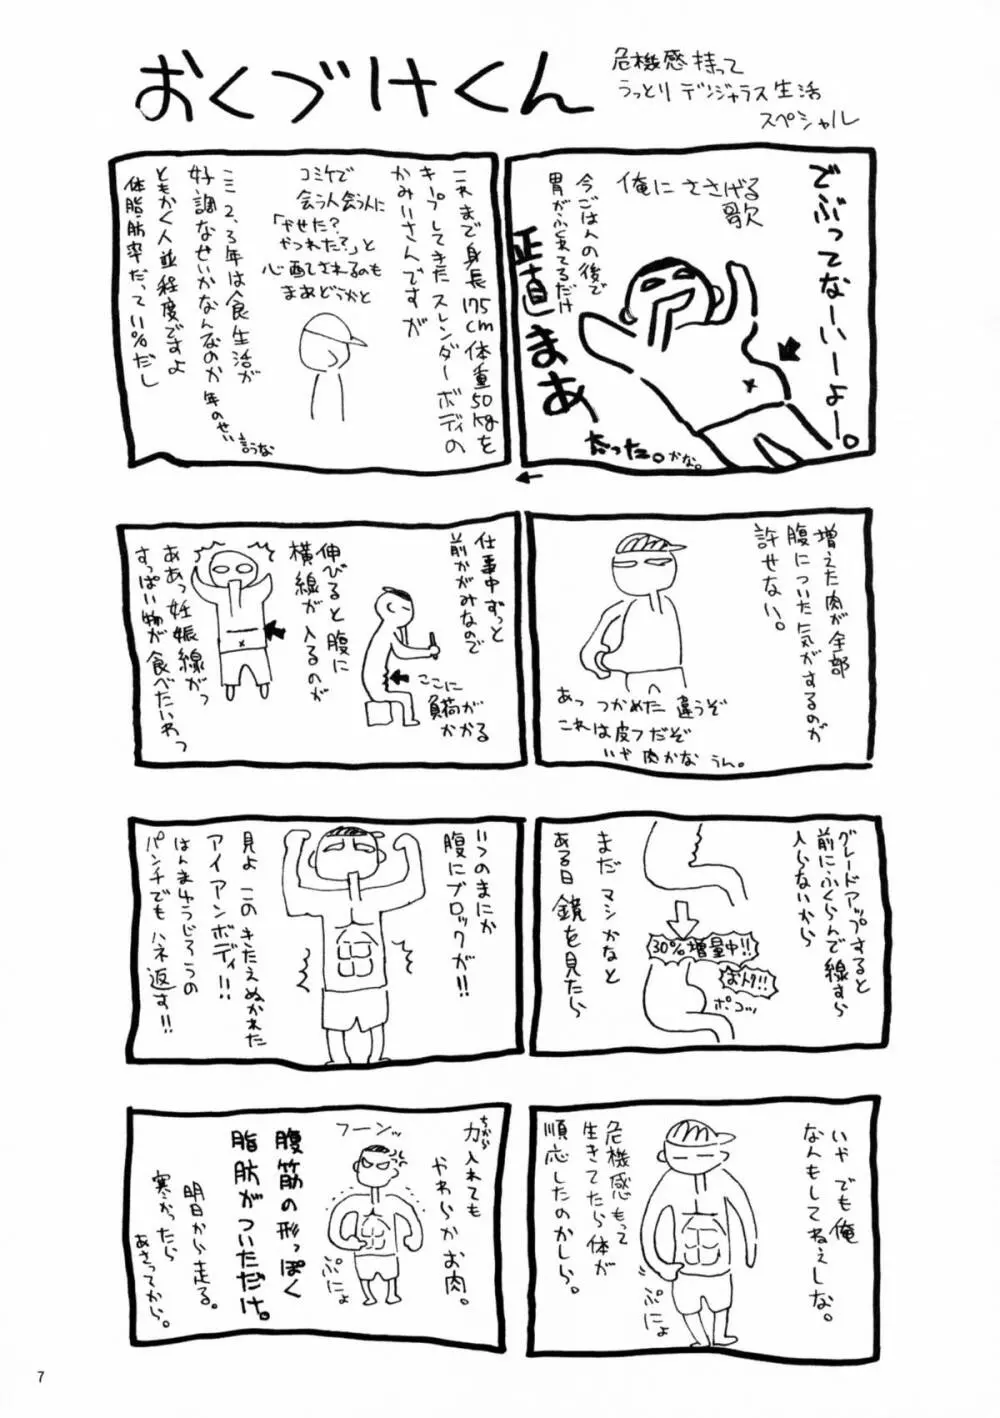 おくづけくん
危機感持って
うっとりデンジャラス生活
スペシャル
でぶってなーいーよー。
俺にささげる
歌
今ごはんの後で
胃がふくれてるだけ
正直まあ
だった。かな。
これまで身長175cm体重50kgを
キープしてきたスレンダーボディの
かみいさんですが
コミケで
会う人会う人に
「やせた?
やつれた?」と
心配されるのも
まあどうかと
ここ2、3年は食生活が
好調なせいかなんなのか年のせい
言うな
ともかく人並程度ですよ
体脂肪率だって11%だし
増えた肉が全部
腹についた気がするのが
許せない。
あっ つかめた 違うぞ
これは皮フだぞ
いや 肉かな うん。
仕事中ずっと
前かがみなので
ここに
負荷が
かかる
伸びると腹に
横線が入るのが
ああっ妊娠線がっ
すっぱい物が食べたいわっ
グレードアップすると
前にふくらんで線すら
入らないから
30%増量中!!
おトク!!
ポコッ
まだマシかなと
ある日鏡を見たら
いつのまにか
腹にブロックが!!
見よ このきたえぬかれた
アイアンボディ!!
はんまゆうじろうの
パンチでもハネ返す!!
いや でも俺
なんもしてねえしな。
ぷにょ
危機感もって
生きてたら体が
順応したのかしら。
力入れても
ちから
やわらかお肉。
フーンッ
ぷにょ
腹筋の形っぽく
脂肪がついただけ。
明日から走る。
寒かったら
あさってから。
7